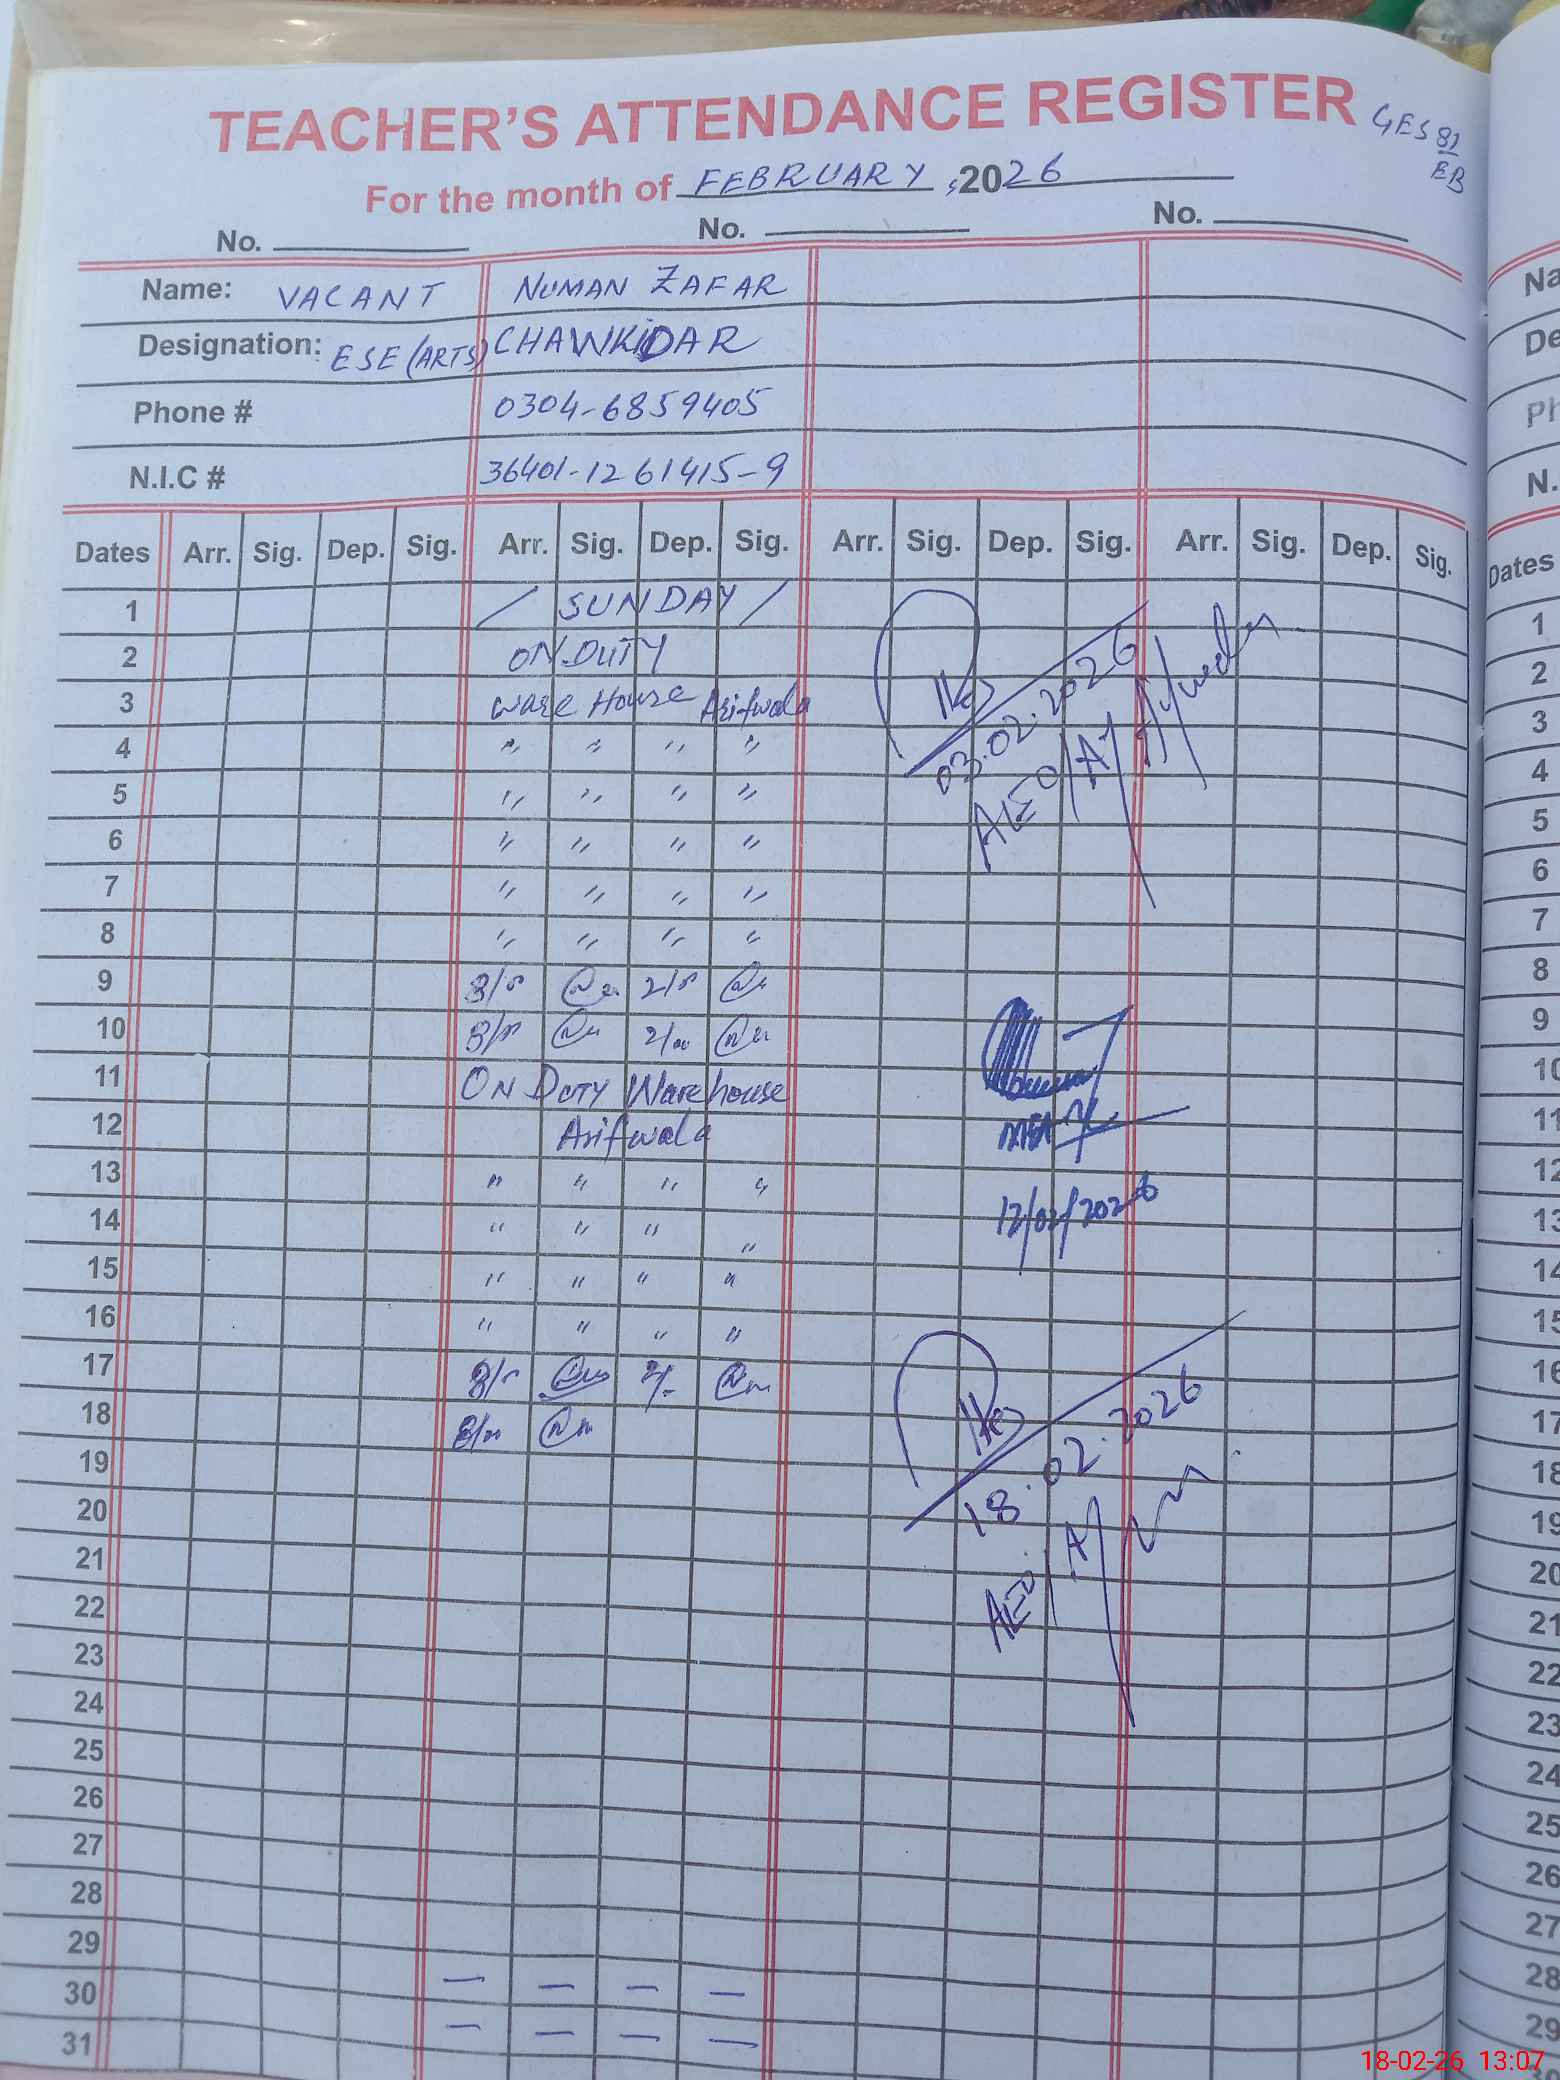 TEACHER'S ATTENDANCE REGISTER GES 81/EB
For the month of FEBRUARY, 2026
No. No. No.
Name: VACANT NUMAN ZAFAR
Designation: ESE (ARTS) CHAWKIDAR
Phone # 0304-6859405
N.I.C # 36401-1261415-9
Dates Arr. Sig. Dep. Sig. Arr. Sig. Dep. Sig. Arr. Sig. Dep. Sig. Arr. Sig. Dep. Sig.
1 / SUNDAY /
2 ON DUTY
3 Ware House Arifwala
4 " " " "
5 " " " "
6 " " " "
7 " " " "
8 " " " "
03.02.2026
AEO
9
10 2/00
11 ON DUTY Warehouse
12 Arifwala
13 " " " "
14 " " " "
15 " " " "
16 " " " "
12/02/2026
17
18 8/00
19
20
18.02.2026
AEO
21
22
23
24
25
26
27
28
29
30 — — — —
31 — — — —
Na
De
Ph
N.
Dates
1
2
3
4
5
6
7
8
9
10
11
12
13
14
15
16
17
18
19
20
21
22
23
24
25
26
27
28
29
18-02-26 13:07